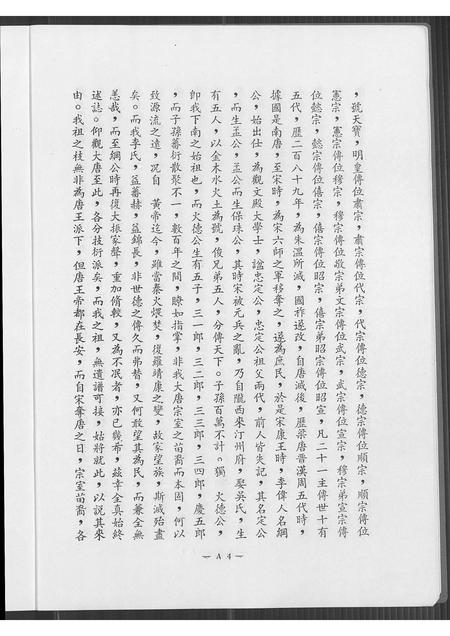 ，號天寶，明皇傳位肅宗，肅宗傳位代宗，代宗傳位德宗，德宗傳位順宗，順宗傳位
憲宗，憲宗傳位穆宗，穆宗傳位敬宗弟文宗傳位武宗，武宗傳位宣宗，穆宗弟宣宗傳
位懿宗，懿宗傳位僖宗，僖宗傳位昭宗，僖宗弟昭宗傳位昭宣，凡二十一主傳世十有
五代，歷二百八十九年，為朱溫所滅，國祚遂改，自唐滅後，歷梁唐晉漢周五代時，
據國是南唐，至宋時，為宋六師之軍移奪之，遂為庶民，於是宋康王時，李偉人名綱
公，始出仕，為觀文殿大學士，諡忠定公，忠定公祖父兩代，前人皆失記，其名定公
，而生孟公，孟公而生保珠公，其時宋被元兵之亂，乃自隴西來汀州府，娶吳氏，生
有五人，以金木水火土為號，俊兄弟五人，分傳天下。子孫百萬不計。獨　火德公，
即我下南之始祖也，而火德公生有五子，三一郎，三二郎，三三郎，三四郎，慶五郎
，而子孫蕃衍散聚不一，數百年之間，瞭如指掌，非我大唐宗室之苗裔而本固，何以
致源流之遠，況自　黃帝迄今，雖當秦火煨焚，復罹靖康之變，故家望族，斯滅殆盡
矣。而我李氏，益蕃赫，益綿長，非世德之傳久而弗替，又何敢望其為民，而兼全無
恙哉，而至綱公時再復大振家聲，重加脩輯，又為不泯者，亦已幾希，茲幸全真始終
述誌。仰觀大唐至此，各分技衍派矣，而我之祖，無遺譜可接，姑將就此，以說其來
由。我祖之枝無非為唐王派下，但唐王帝都在長安，而自宋奪唐之日，宗室苗裔，各
— A 4 —